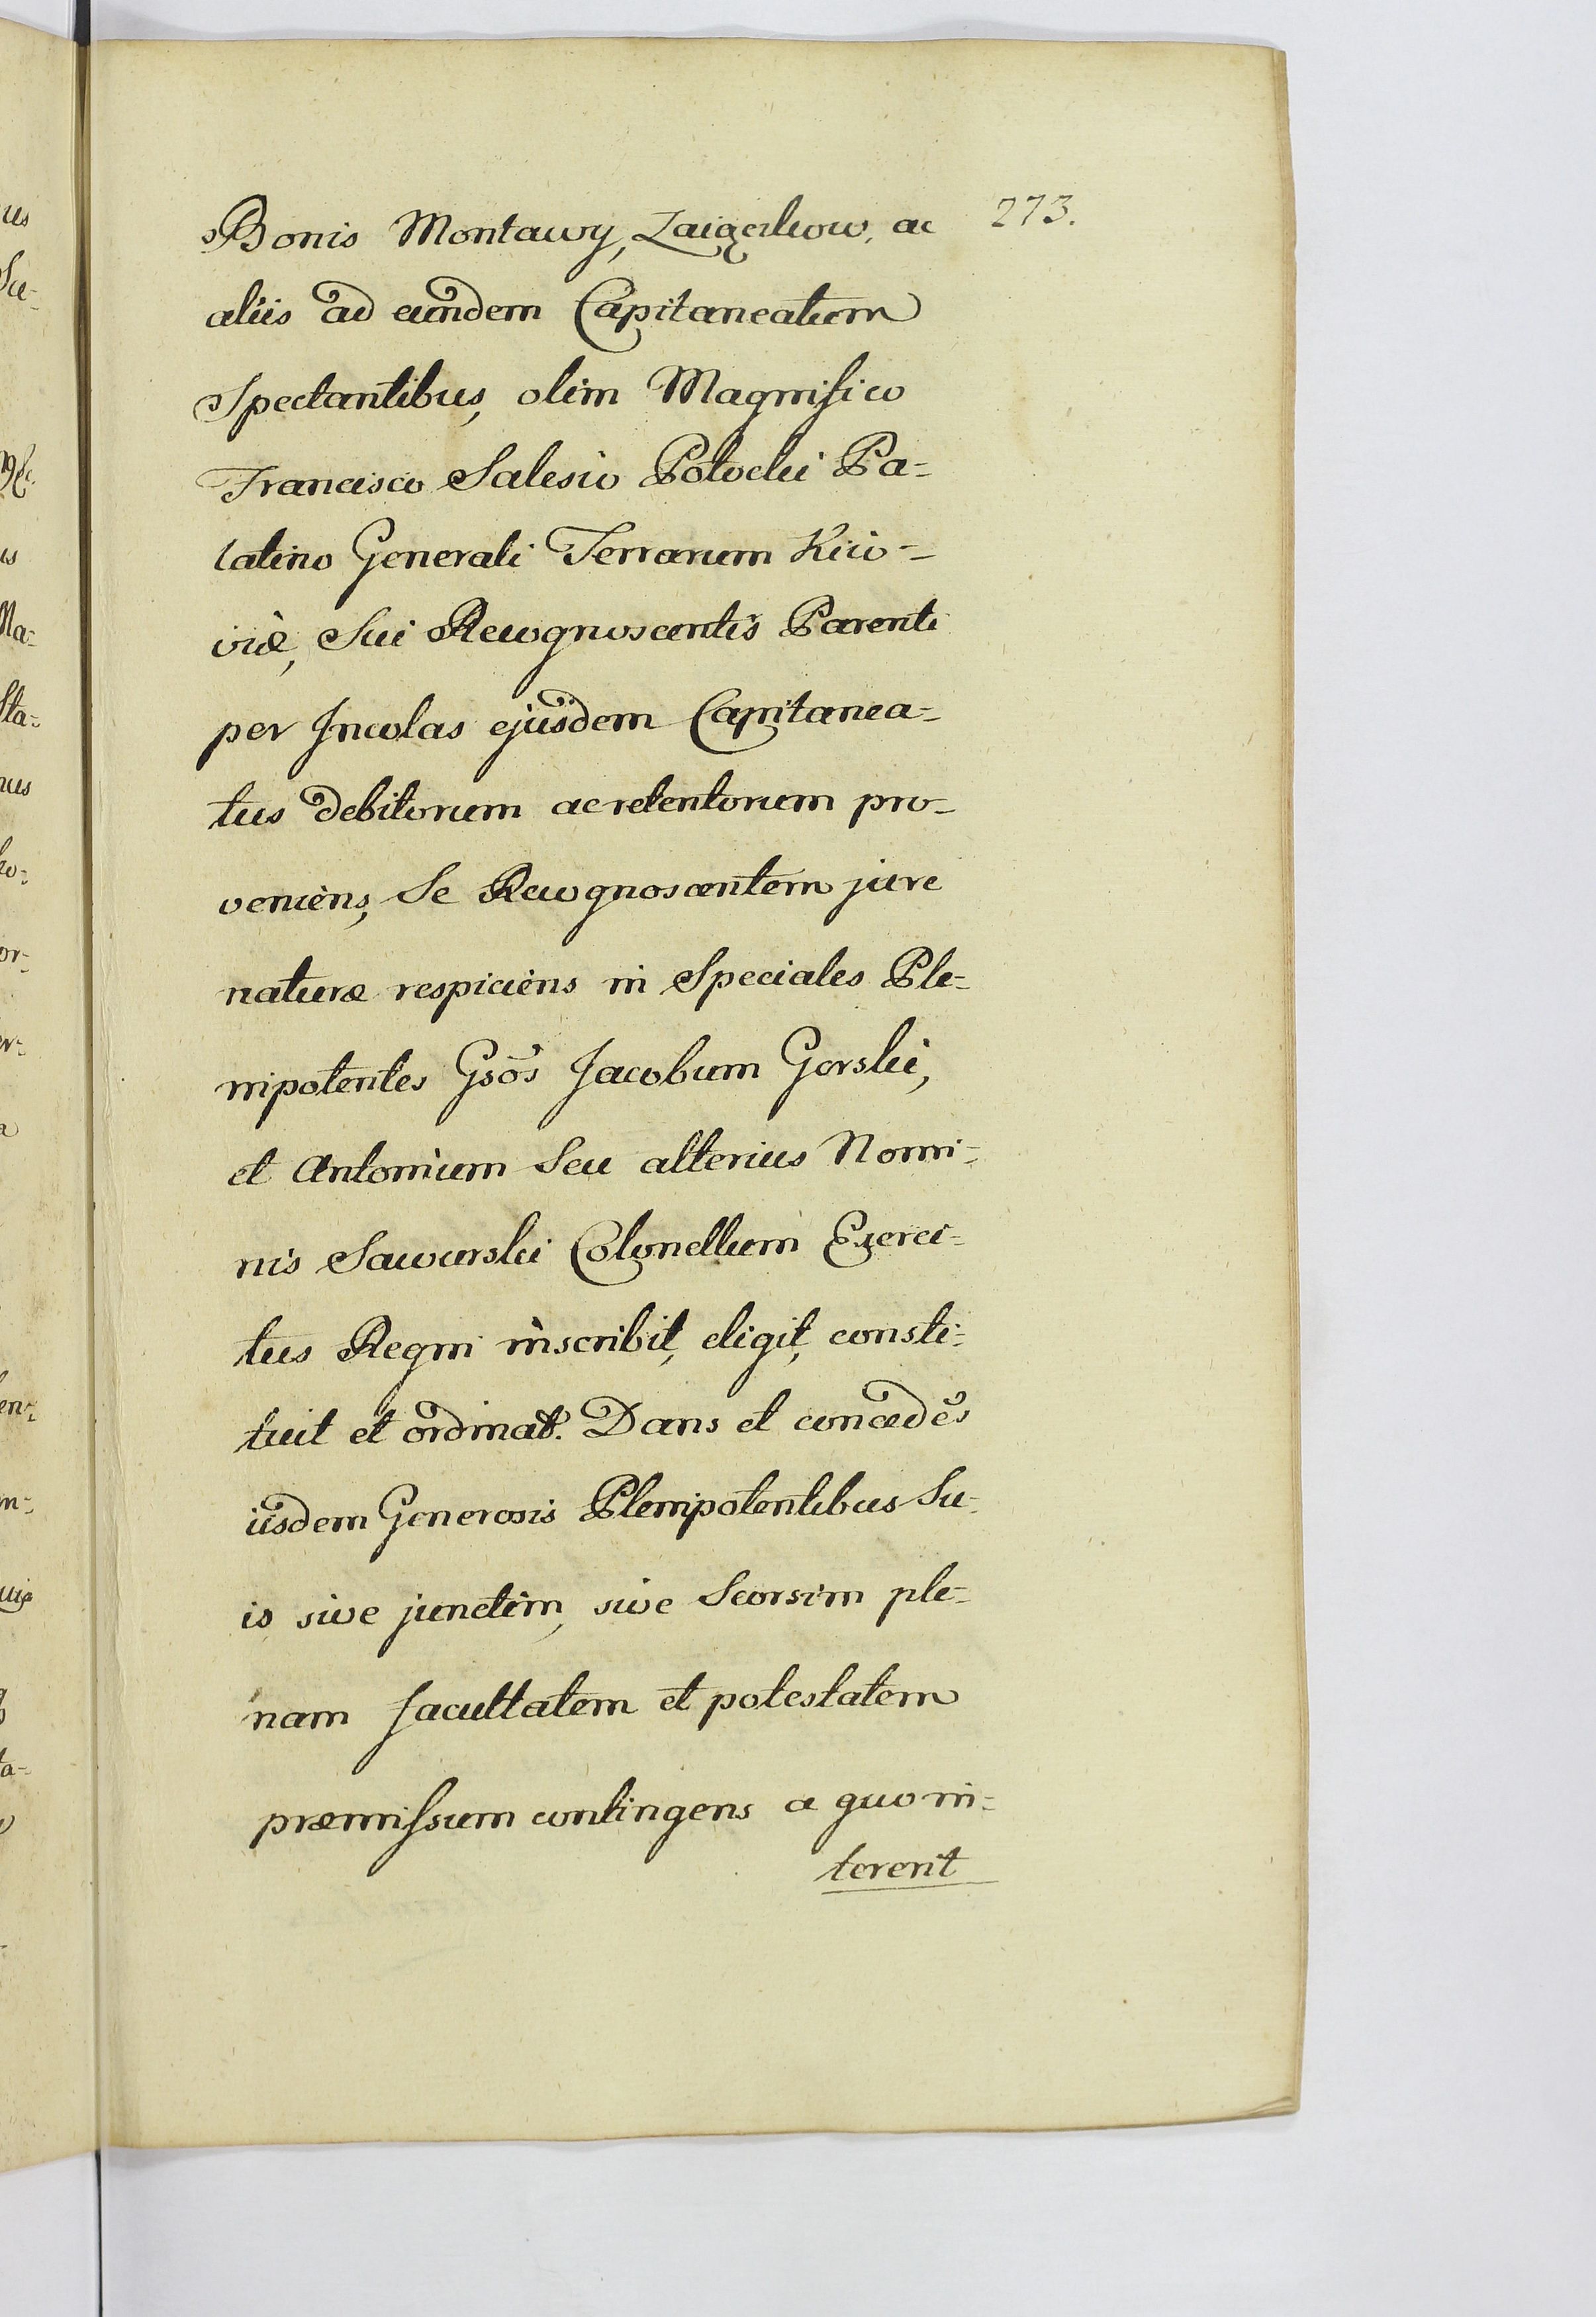 Bonis Montawy, Laigerkow, ac 273.
aliis ad eundem Capitaneatum
Spectantibus, olim Magnifico
Francisco Salesio Potocki Pa=
latino Generali Terrarum Kiio=
viæ, Sui Recognoscentis Parenti
per Incolas ejusdem Capitanea=
tus debitorum ac retentorum pro=
veniens, Se Recognoscentem jure
naturæ respiciens in Speciales Ple=
nipotentes Gsõs Jacobum Gorski,
et Antonium Seu alterius Nomi=
nis Sawurski Colonellum Exerci=
tus Regni inscribit, eligit, consti=
tuit et ordinat. Dans et concedẽs
iisdem Generosis Plenipotentibus Su=
is sive junctim, sive Seorsim ple=
nam facultatem et potestatem
præmissum contingens a quo in=
tererit